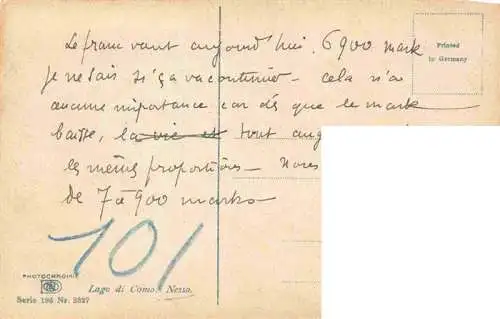 Le franc vaut aujourd'hui, 6900 mark
je ne sais si ça va continuer – cela n'a
aucune importance car dès que le mark
baisse, la vie est tout aug
les mêmes proportions –
de 7 à 900 marks –
101
Printed
in Germany
PHOTOCHROMIE
Lago di Como. Nesso.
Serie 196 Nr. 3827